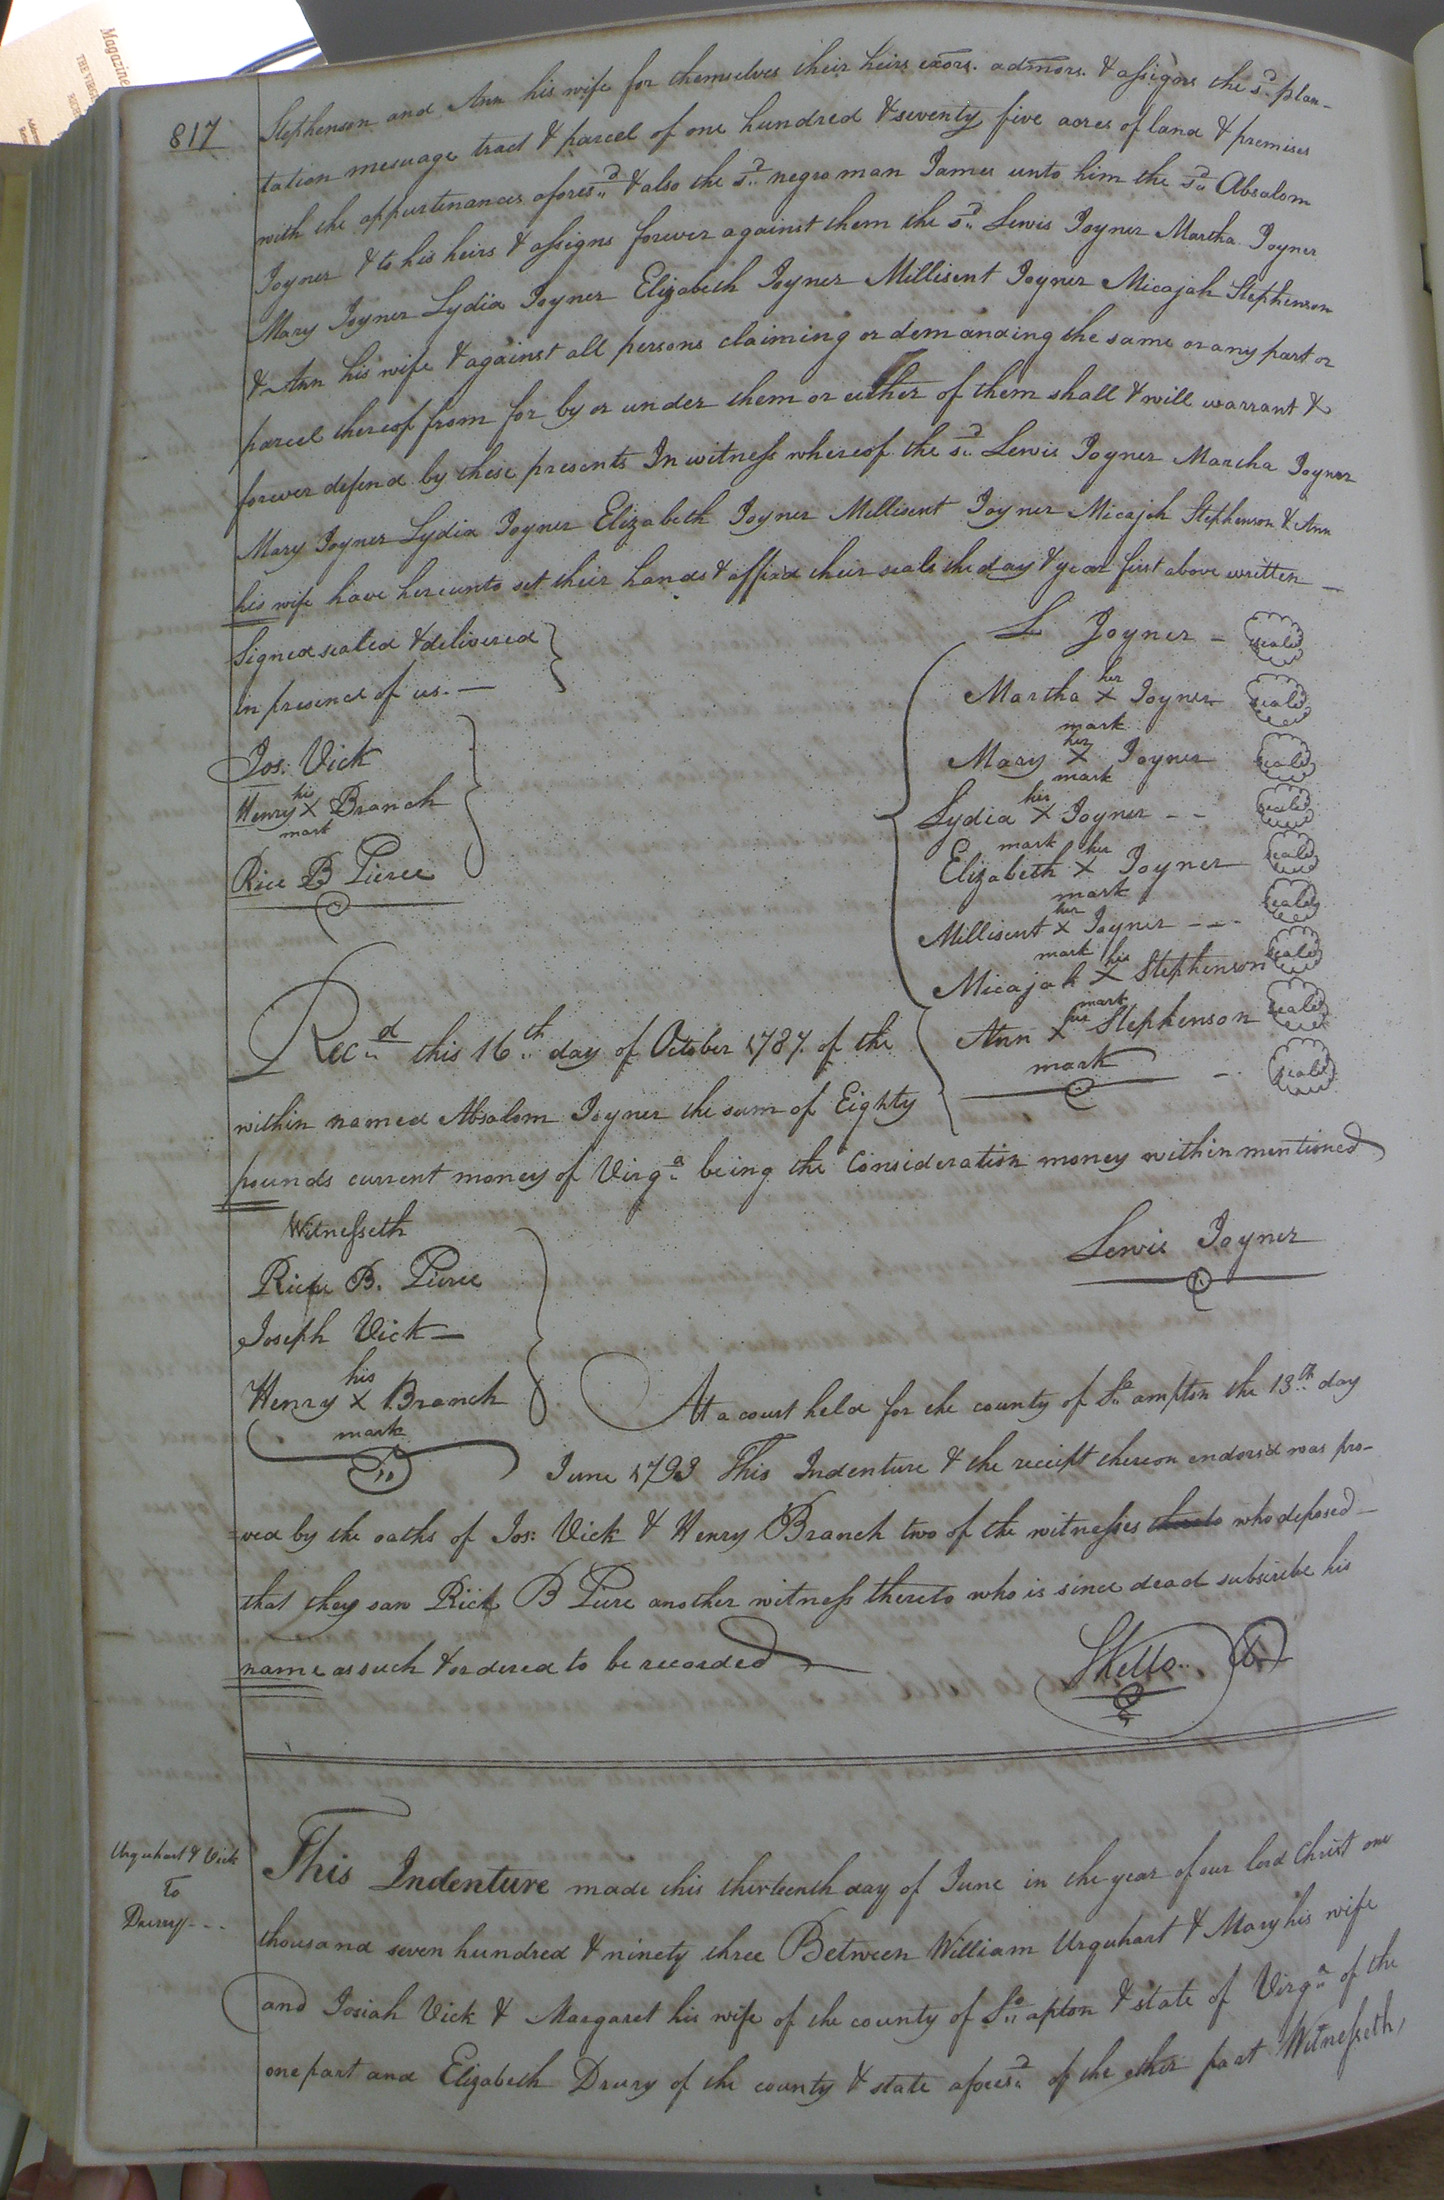 Magazine
817
Stephenson and Ann his wife for themselves their heirs exors. admors. & assigns the sd. plan-
tation mesuage tract & parcel of one hundred & seventy five acres of land & premises
with the appurtinances aforesd. & also the sd. negro man James unto him the sd. Absalom
Joyner & to his heirs & assigns forever against them the sd. Lewis Joyner Martha Joyner
Mary Joyner Lydia Joyner Elizabeth Joyner Millisent Joyner Micajah Stephenson
& Ann his wife & against all persons claiming or demanding the same or any part or
parcel thereof from for by or under them or either of them shall & will warrant &
forever defend by these presents In witness whereof the sd. Lewis Joyner Martha Joyner
Mary Joyner Lydia Joyner Elizabeth Joyner Millisent Joyner Micajah Stephenson & Ann
his wife have hereunto set their hands & affixd their seals the day & year first above written
Signed sealed & delivered
in presence of us. —
Jos: Vick
his
Henry X Branch
mark
Rice B Pierce
L Joyner - seald
her
Martha X Joyner seald
mark
her
Mary X Joyner seald
mark
her
Lydia X Joyner - - seald
mark
her
Elizabeth X Joyner seald
mark
her
Millisent X Joyner - - - seald
mark
his
Micajah X Stephenson seald
mark
her
Ann X Stephenson seald
mark
- seald
Recd. this 16th. day of October 1787. of the
within named Absalom Joyner the sum of Eighty
pounds current money of Virga. being the Consideration money within mentioned
Witnesseth
Rice B. Pierce
Joseph Vick —
his
Henry X Branch
mark
Lewis Joyner
At a court held for the county of So.ampton the 13th. day
June 1793 This Indenture & the receipt thereon endorsd was pro-
=ved by the oaths of Jos: Vick & Henry Branch two of the witnesses thereto who deposed —
that they saw Rick B Pierc another witness thereto who is since dead subscribe his
name as such & ordered to be recorded
Urquhart & Vick
To
Drury - - -
This Indenture made this thirteenth day of June in the year of our lord Christ one
thousand seven hundred & ninety three Between William Urquhart & Mary his wife
and Josiah Vick & Margaret his wife of the county of So.apton & state of Virga. of the
one part and Elizabeth Drury of the county & state aforesd. of the other part Witnesseth,